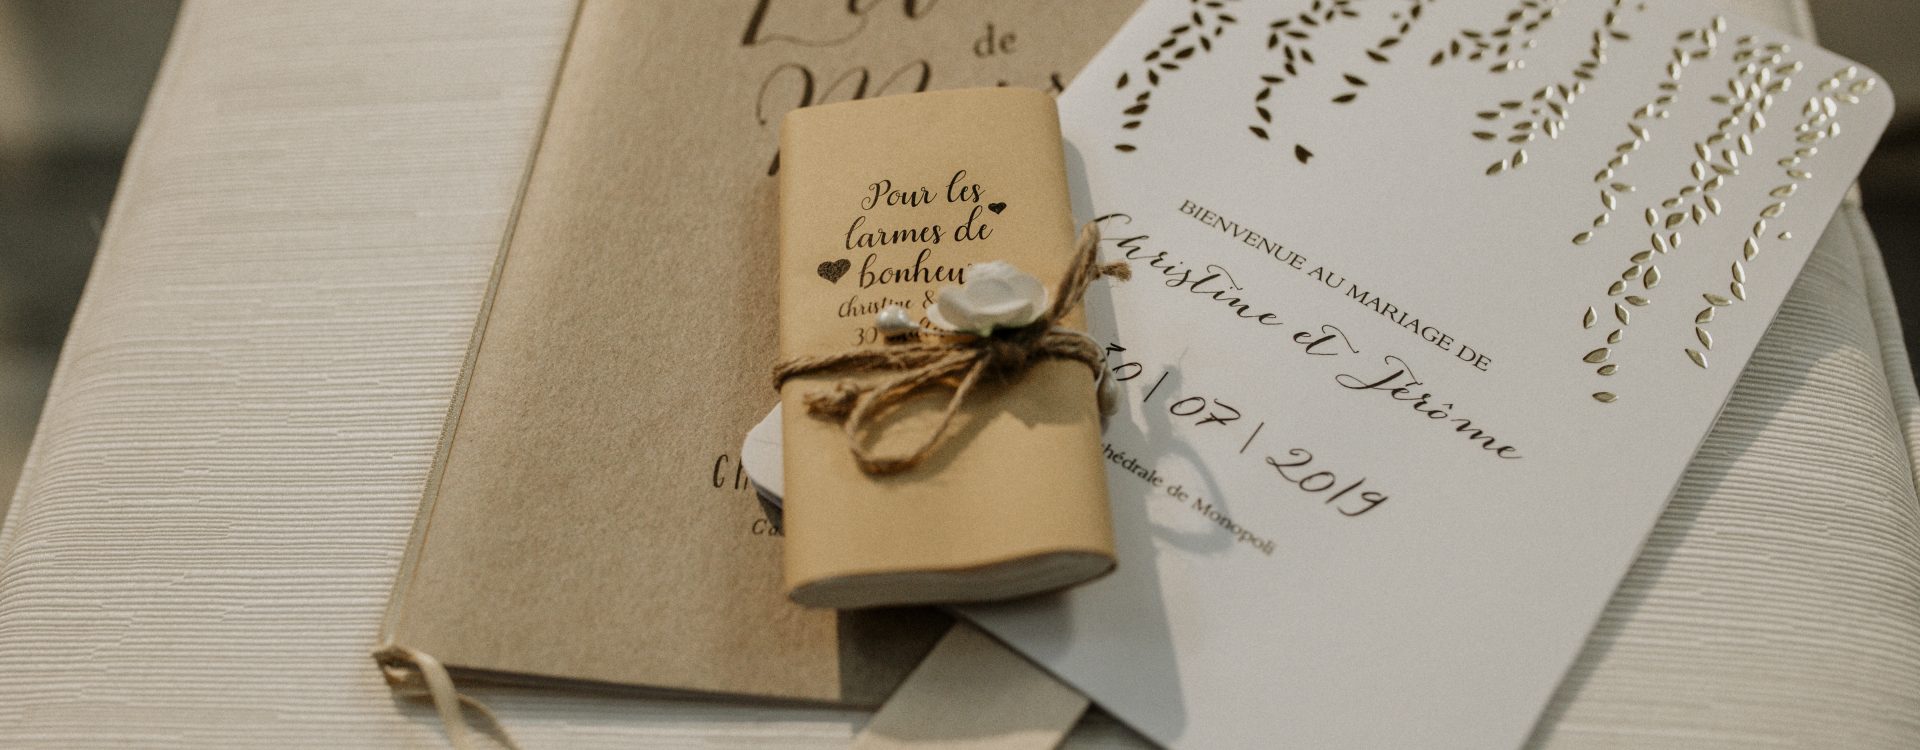 de
Pour les
larmes de
bonheur
Christine &
30
BIENVENUE AU MARIAGE DE
Christine et Jérôme
30 | 07 | 2019
de Monopoli